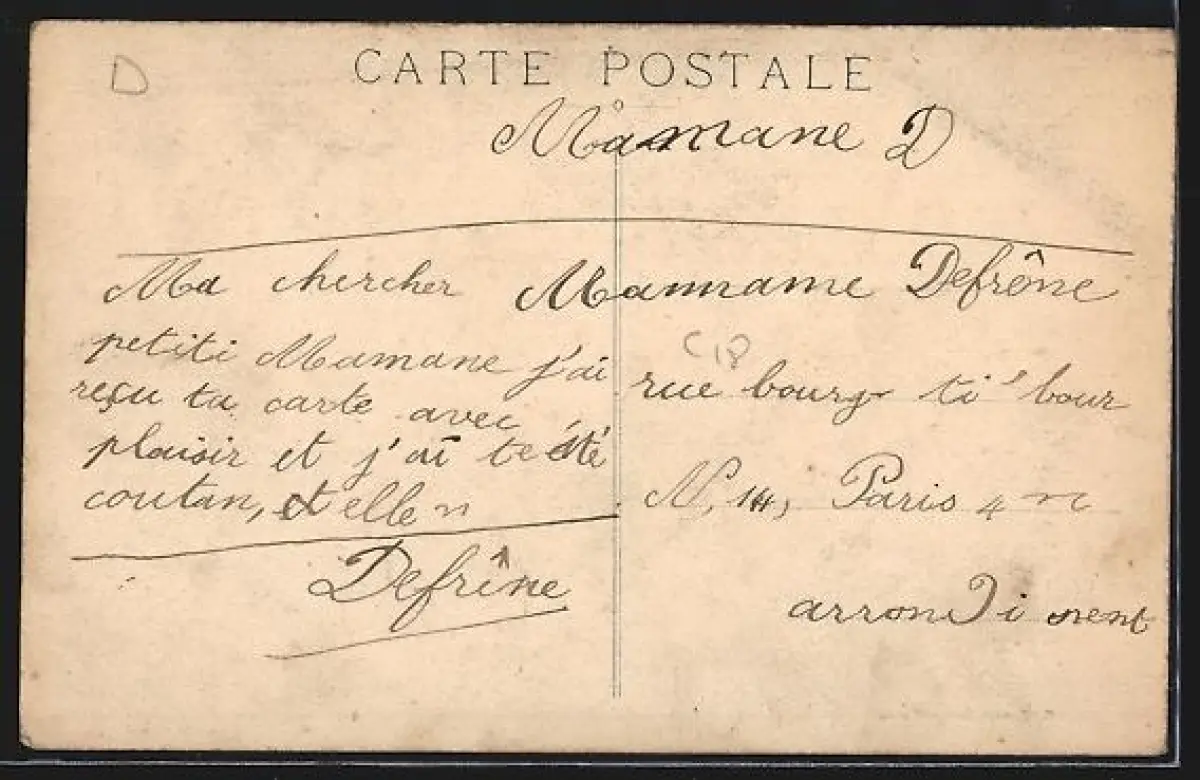 D
CARTE POSTALE
Mamane D
Ma chercher
petiti Mamane j'ai
reçu ta carte avec
plaisir et j'ai te été
coutan, et elle n
Defrîne
Mamname Defrône
C18
rue bourg ti' bour
N, 14, Paris 4 me
arrondi ment